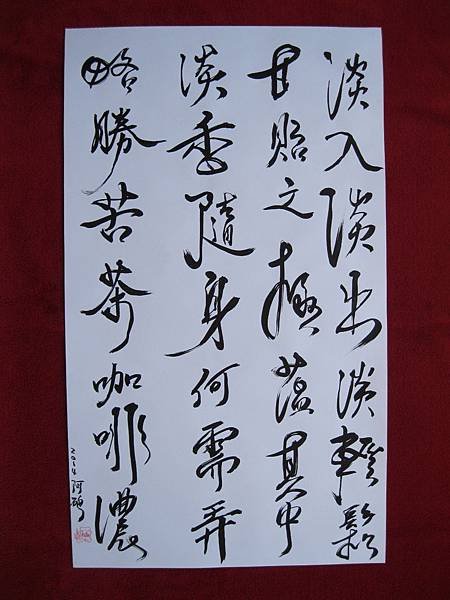 淡入淡出淡輕鬆
甘貽之極蘊其中
淡香隨身何需弄
略勝苦茶咖啡濃
2014 阿碩